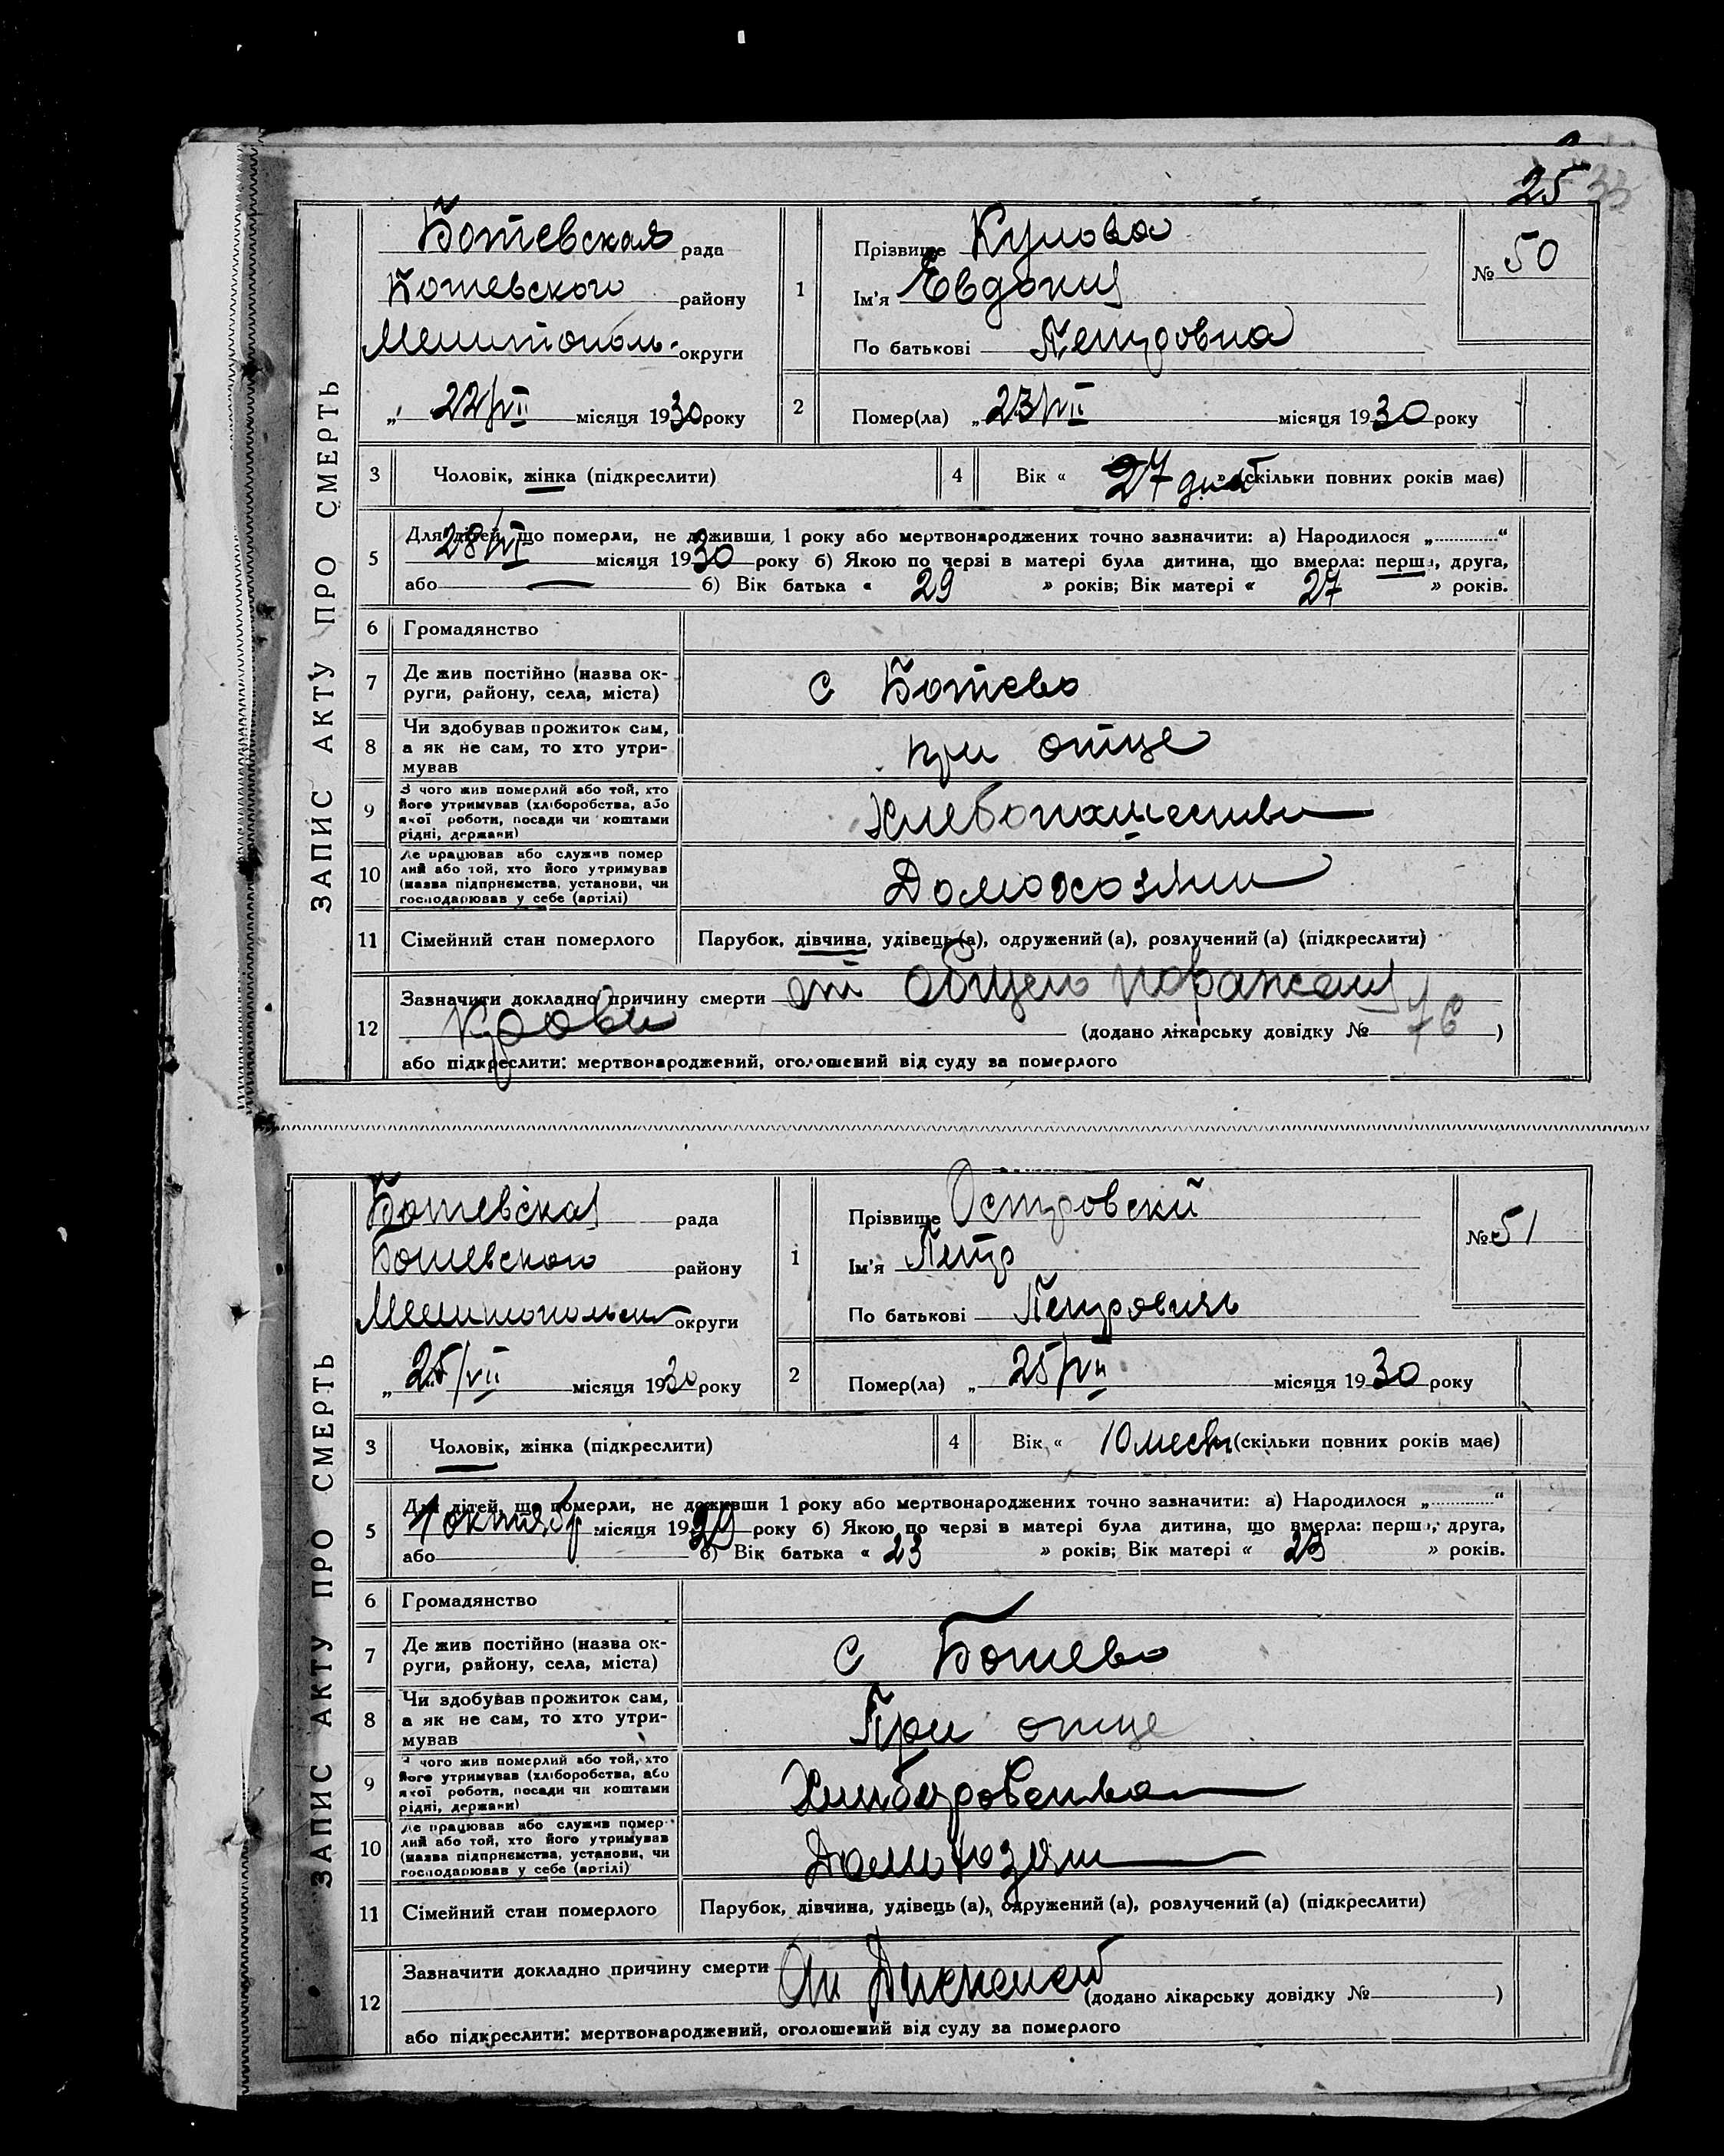 25 33
ЗАПИС АКТУ ПРО СМЕРТЬ
Ботевская рада
Ботевского району
Мелитополь. округи
„ 22/VII місяця 1930 року
1 Прізвище Кулова
Ім'я Евдокия
По батькові Петровна
№ 50
2 Помер(ла) „ 23/VII місяця 1930 року
3 Чоловік, жінка (підкреслити)
4 Вік « 27 дней » (скільки повних років має)
5 Для дітей, що померли, не доживши 1 року або мертвонароджених точно зазначити: а) Народилося „............“
28/VI місяця 1930 року б) Якою по черзі в матері була дитина, що вмерла: перша, друга,
або — б) Вік батька « 29 » років; Вік матері « 27 » років.
6 Громадянство
7 Де жив постійно (назва ок-
руги, району, села, міста)
с Ботево
8 Чи здобував прожиток сам,
а як не сам, то хто утри-
мував
при отце
9 З чого жив померлий або той, хто
його утримував (хліборобства, або
якої роботи, посади чи коштами
рідні, держави)
Хлебопашество
10 Де працював або служив помер
лий або той, хто його утримував
(назва підприємства, установи, чи
господарював у себе (артілі)
Домохозяин
11 Сімейний стан померлого
Парубок, дівчина, удівець (а), одружений (а), розлучений (а) (підкреслити)
12 Зазначити докладно причину смерти от общего поражения
крови (додано лікарську довідку № 76 )
або підкреслити: мертвонароджений, оголошений від суду за померлого
ЗАПИС АКТУ ПРО СМЕРТЬ
Ботевская рада
Ботевского району
Мелитопольск округи
„ 25/VII місяця 1930 року
1 Прізвище Островский
Ім'я Петр
По батькові Петрович
№ 51
2 Помер(ла) „ 25/VII місяця 1930 року
3 Чоловік, жінка (підкреслити)
4 Вік « 10 месяц (скільки повних років має)
5 Для дітей, що померли, не доживши 1 року або мертвонароджених точно зазначити: а) Народилося „............“
1 октябр місяця 1929 року б) Якою по черзі в матері була дитина, що вмерла: перша, друга,
або б) Вік батька « 23 » років; Вік матері « 23 » років.
6 Громадянство
7 Де жив постійно (назва ок-
руги, району, села, міста)
с Ботево
8 Чи здобував прожиток сам,
а як не сам, то хто утри-
мував
При отце
9 З чого жив померлий або той, хто
його утримував (хліборобства, або
якої роботи, посади чи коштами
рідні, держави)
10 Де працював або служив помер-
лий або той, хто його утримував
(назва підприємства, установи, чи
господарював у себе (артілі)
Домохозяин
11 Сімейний стан померлого
Парубок, дівчина, удівець (а), одружений (а), розлучений (а) (підкреслити)
12 Зазначити докладно причину смерти От
(додано лікарську довідку № )
або підкреслити: мертвонароджений, оголошений від суду за померлого